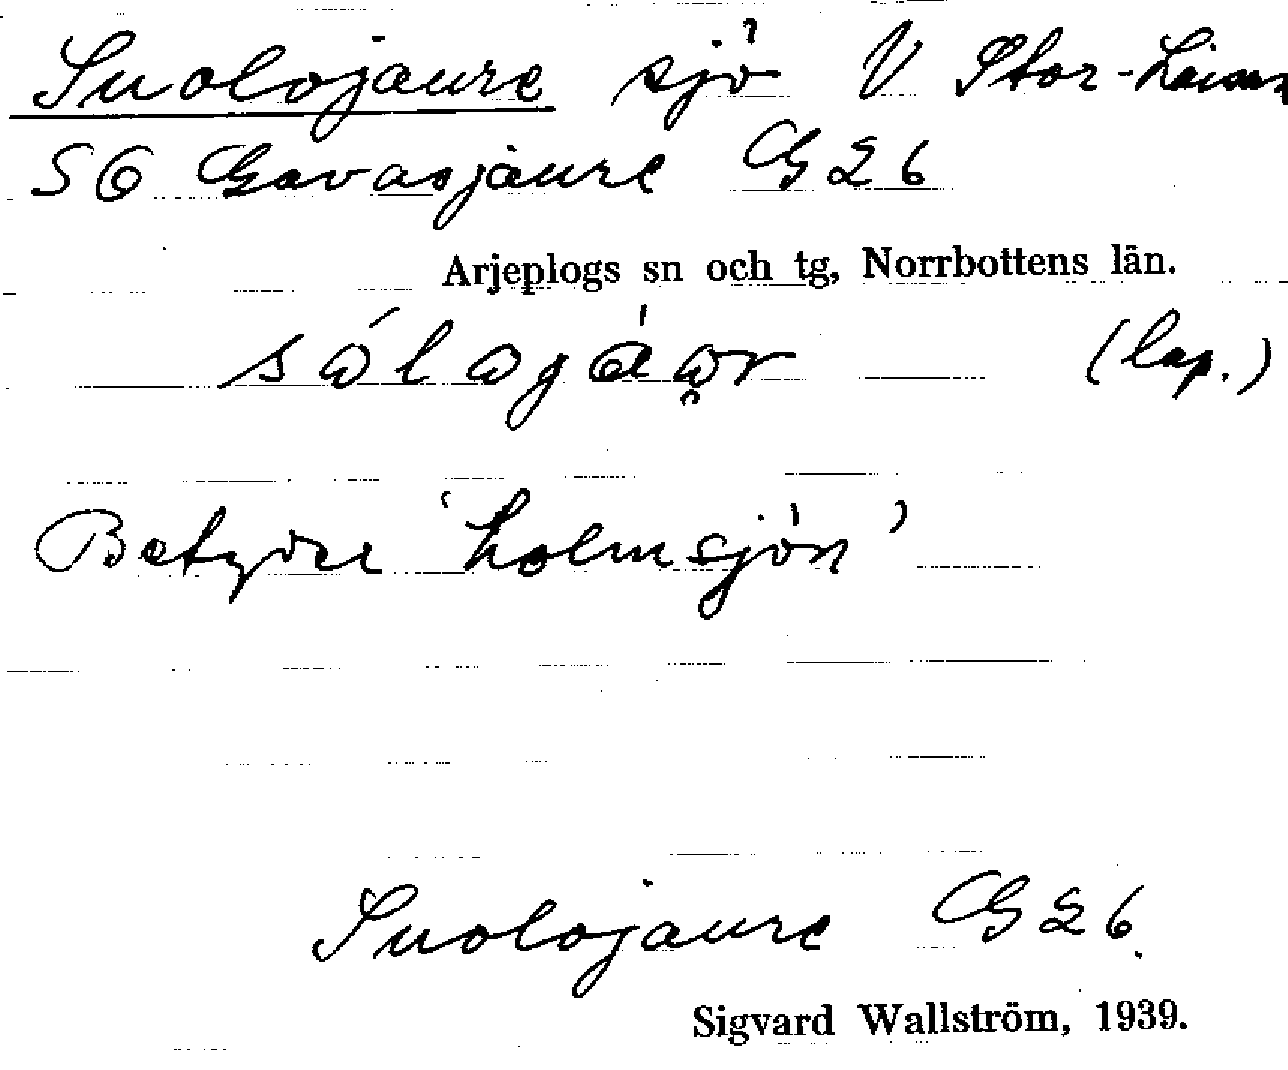 Suolojaure sjö V Stor-Laisan
SO Gavasjaure G26
Arjeplogs sn och tg, Norrbottens län.
(lap.)
Betyder 'holmsjön'
Suolojaure G26.
Sigvard Wallström, 1939.